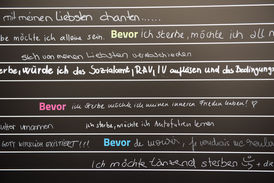 mit meinen Liebsten chanten......
be möchte ich alleine sein. Bevor ich sterbe, möchte ich all
sich von meinen Liebsten verabschieden
erbe, würde ich das Sozialamt, RAV, IV auflösen und das Bedingungs
Bevor ich sterbe möchte ich meinen inneren Frieden haben!
umarmen ich sterbe, möchte ich Autofahren lernen
GOTT WIRKLICH EXISTIERT!!! Bevor de mourir, je voudrais
Ich möchte tanzend sterben + die